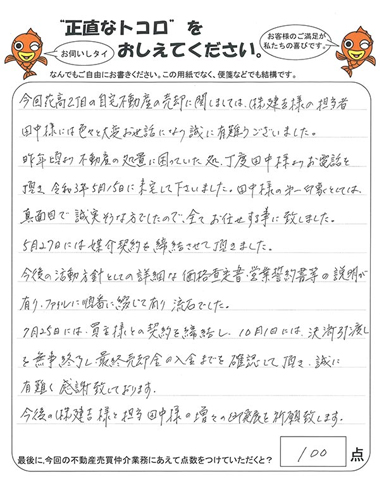 "正直なトコロ"を
おしえてください。
お伺いしタイ
お客様のご満足が
私たちの喜びです。
なんでもご自由にお書きください。この用紙でなく、便箋などでも結構です。
今回花高2丁目の自宅不動産の売却に関しましては、(株)建吉様の担当者
田中様には色々と大変お世話になり誠に有難うございました。
昨年頃より不動産の処置に困っていた処、丁度田中様よりお電話を
頂き、令和3年5月15日に来宅して下さいました。田中様の第一印象としては、
真面目で誠実そうな方でしたので、全てお任せする事に致しました。
5月27日には媒介契約を締結させて頂きました。
今後の活動方針としての詳細な価格査定書・営業誓約書等の説明が
有り、ファイルに順番に綴じて有り流石でした。
7月25日には、買主様との契約を締結し、10月1日には、決済引渡し
を無事終了し最終売却金の入金までを確認して頂き、誠に
有難く感謝致しております。
今後の(株)建吉様と担当田中様の増々の御発展を祈願致します。
最後に、今回の不動産売買仲介業務にあえて点数をつけていただくと?
100点